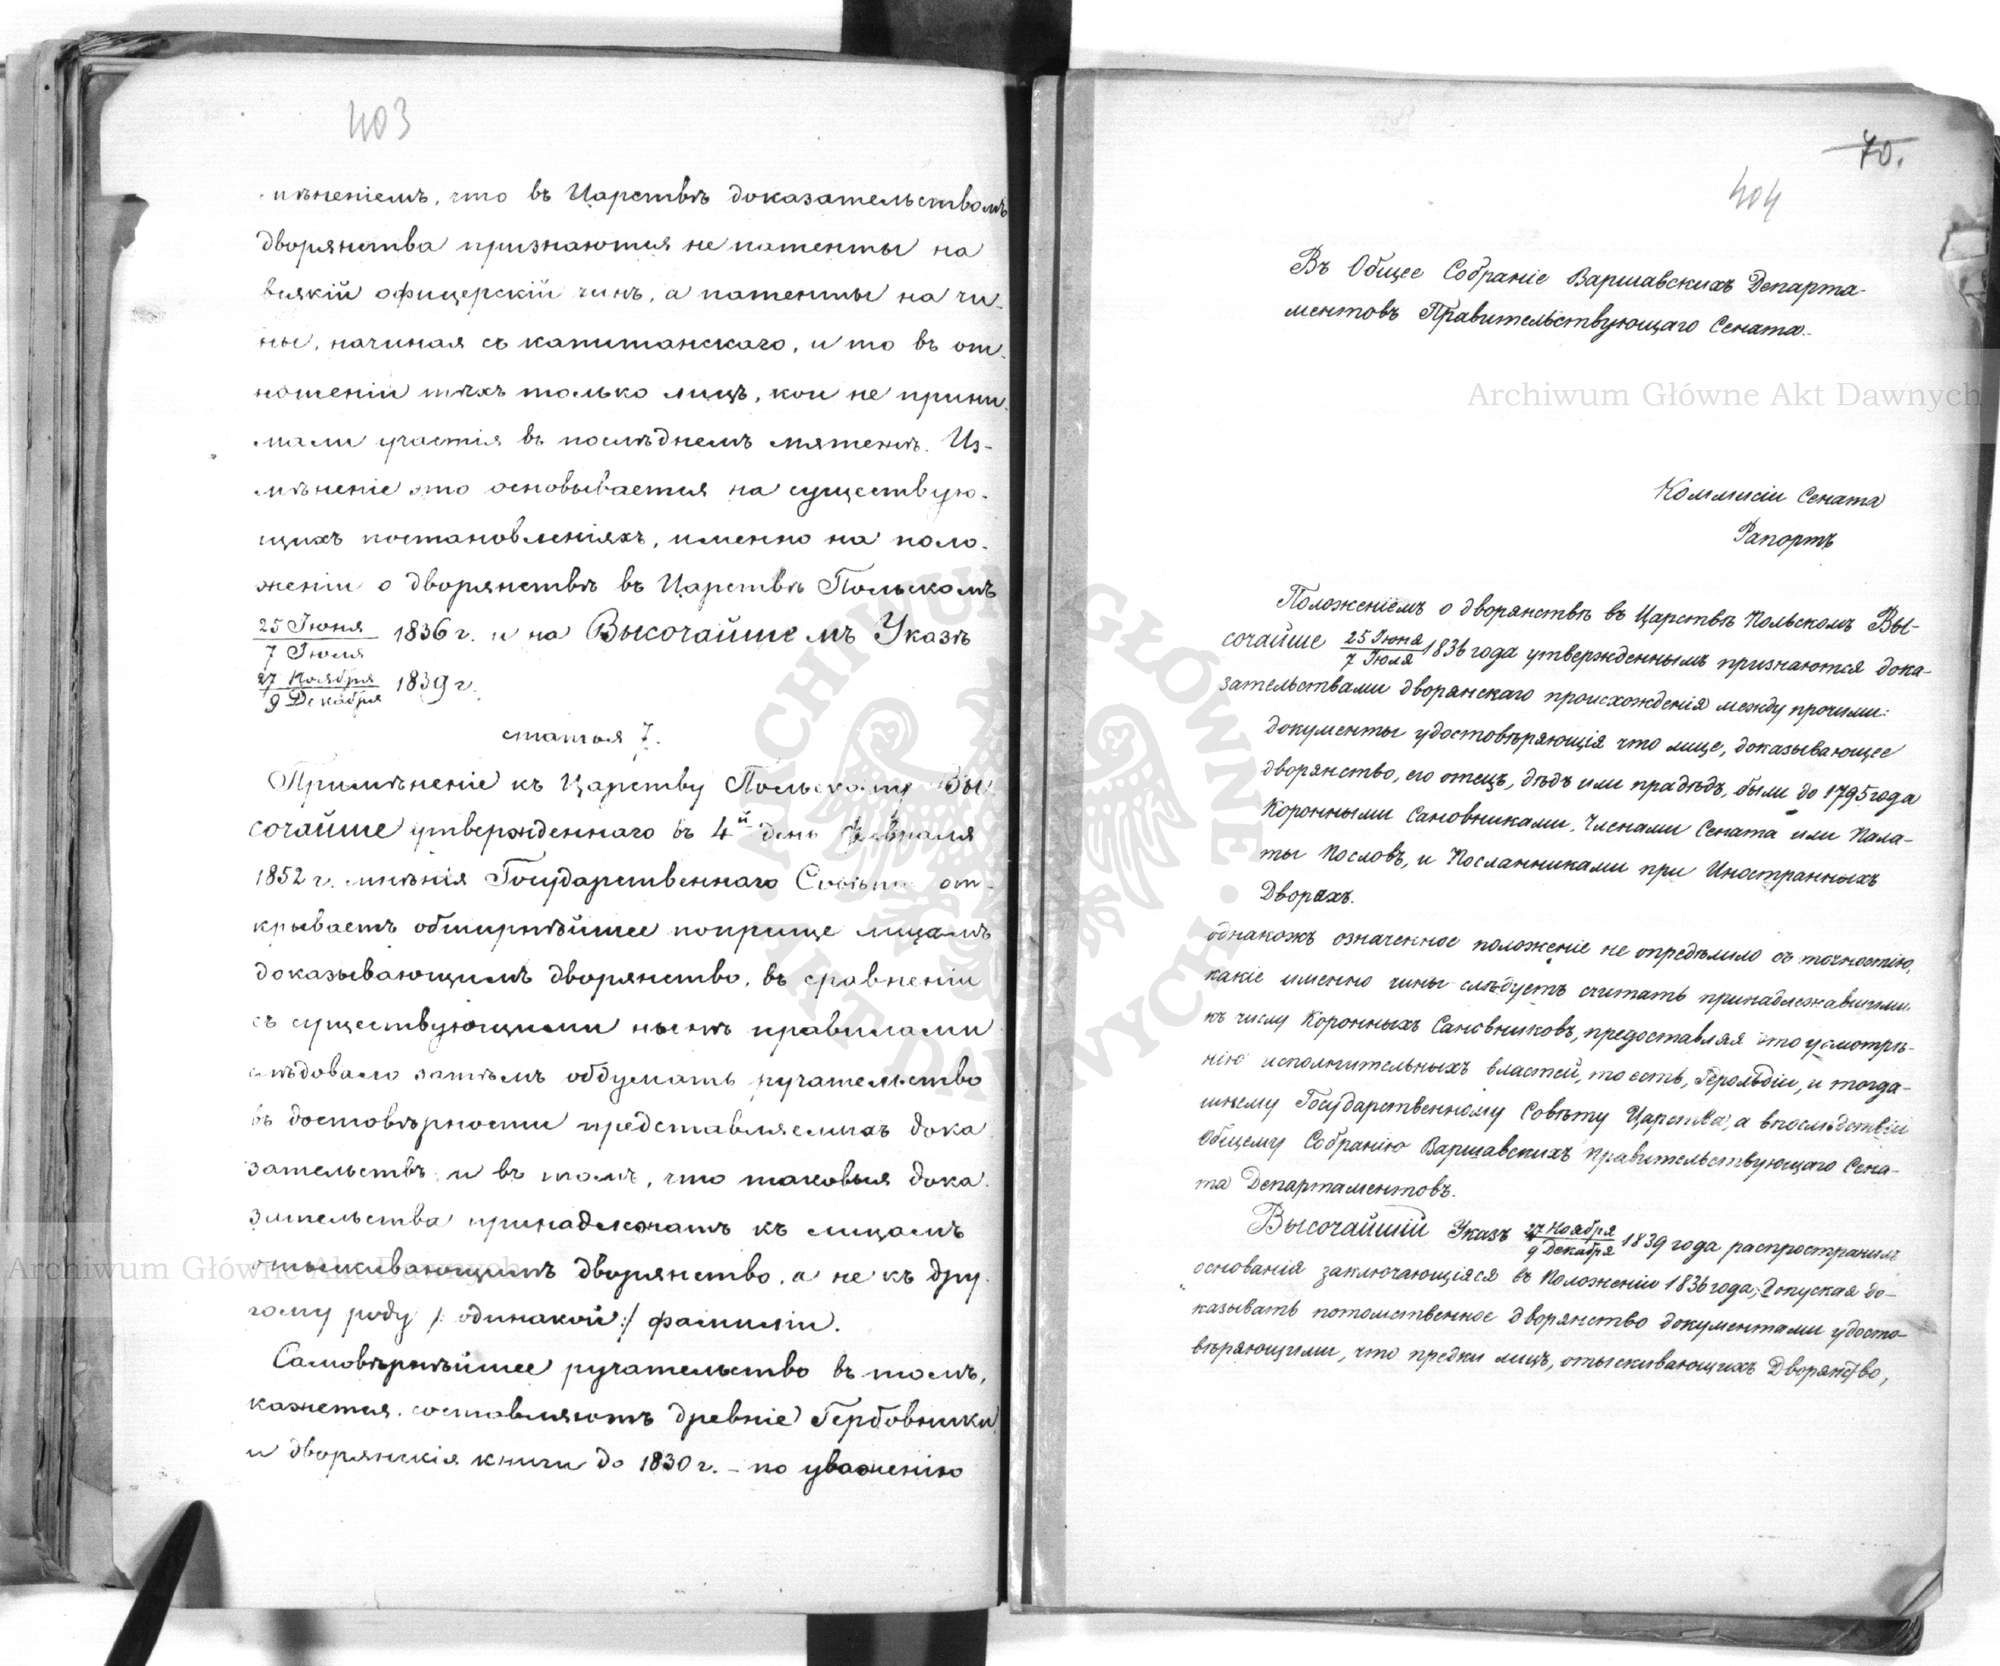 403
мѣненіемъ, что въ Царствѣ доказательствомъ
дворянства признаются не патенты на
всякій офицерскій чинъ, а патенты на чи-
ны, начиная съ капитанскаго, и то въ от-
ношеніи тѣхъ только лицъ, кои не прини-
мали участія въ послѣднемъ мятежѣ. Из-
мѣненіе это основывается на существую-
щихъ постановленіяхъ, именно на поло-
женіи о дворянствѣ въ Царствѣ Польскомъ
25 Іюня / 7 Іюля 1836 г. и на Высочайшемъ Указѣ
27 Ноября / 9 Декабря 1839 г.
статья 7.
Примѣненіе къ Царству Польскому Вы
сочайше утвержденнаго въ 4й день Февраля
1852 г. мнѣнія Государственнаго Совѣта от-
крываетъ обширнѣйшее поприще лицамъ
доказывающимъ дворянство, въ сравненіи
съ существующими нынѣ правилами
слѣдовало затѣмъ обдумать ручательство
въ достовѣрности представляемыхъ дока
зательствъ и въ томъ, что таковыя дока-
зательства принадлежатъ къ лицамъ
отыскивающимъ дворянство, а не къ дру-
гому роду /: одинакой :/ фамиліи.
Самовѣрнѣйшее ручательство въ томъ,
кажется, составляютъ древніе Гербовники
и дворянскія книги до 1830 г. – по уваженію
70.
404
Въ Общее Собраніе Варшавскихъ Департа-
ментовъ Правительствующаго Сената.
Коммисіи Сената
Рапортъ
Положеніемъ о дворянствѣ въ Царствѣ Польскомъ Вы-
сочайше 25 Іюня / 7 Іюля 1836 года утвержденнымъ признаются дока-
зательствами дворянскаго происхожденія между прочими:
документы удостовѣряющія что лице, доказывающее
дворянство, его отецъ, дѣдъ или прадѣдъ, были до 1795 года
Коронными Сановниками, Членами Сената или Пала-
ты Пословъ, и Посланниками при Иностранныхъ
Дворахъ.
однакожъ означенное положеніе не опредѣлило съ точностію,
какіе именно чины слѣдуетъ считать принадлежавшими
къ числу Коронныхъ Сановниковъ, предоставляя это усмотрѣ-
нію исполнительныхъ властей, то есть, Герольдіи, и тогда-
шнему Государственному Совѣту Царства, а впослѣдствіи
Общему Собранію Варшавскихъ Правительствующаго Сена-
та Департаментовъ.
Высочайшій Указъ 27 Ноября / 9 Декабря 1839 года распространилъ
основанія заключающіяся въ Положеніи 1836 года, допуская до-
казывать потомственное дворянство документами удосто-
вѣряющими, что предки лицъ, отыскивающихъ Дворянство,
Archiwum Główne Akt Dawnych
Archiwum Główne Akt Dawnych
ARCHIWUM GŁÓWNE AKT DAWNYCH